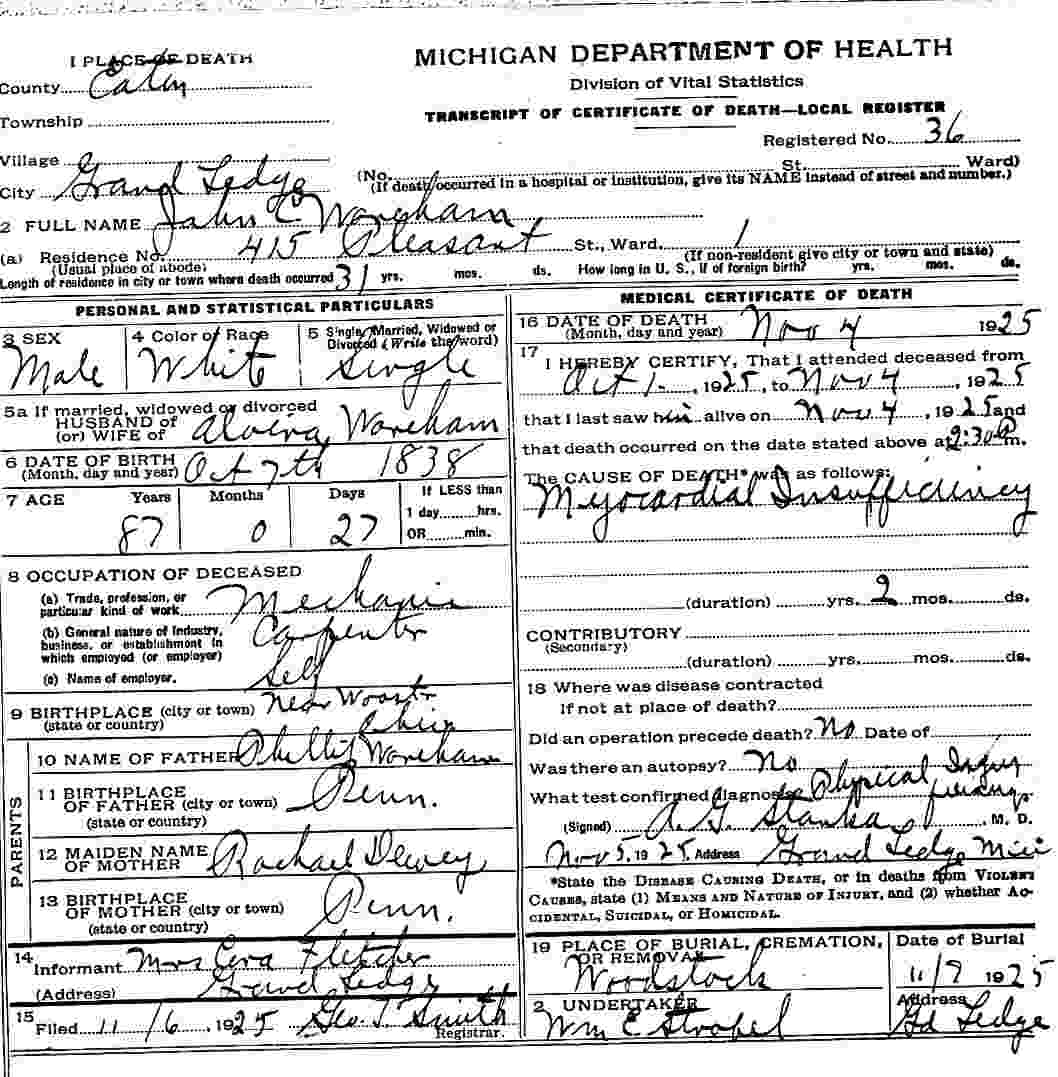 1 PLACE OF DEATH
County Eaton
Township
Village
City Grand Ledge
MICHIGAN DEPARTMENT OF HEALTH
Division of Vital Statistics
TRANSCRIPT OF CERTIFICATE OF DEATH—LOCAL REGISTER
Registered No. 36
(No. St. Ward)
(If death occurred in a hospital or institution, give its NAME instead of street and number.)
2 FULL NAME John C Wareham
(a) Residence No. 415 Pleasant St., Ward. 1
(Usual place of abode) (If non-resident give city or town and state)
Length of residence in city or town where death occurred 31 yrs. mos. ds. How long in U. S., if of foreign birth? yrs. mos. ds.
PERSONAL AND STATISTICAL PARTICULARS
3 SEX
Male
4 Color of Race
White
5 Single, Married, Widowed or
Divorced (Write the word)
Single
5a If married, widowed or divorced
HUSBAND of
(or) WIFE of Alvira Wareham
6 DATE OF BIRTH
(Month, day and year) Oct 7th 1838
7 AGE Years Months Days If LESS than
1 day hrs.
87 0 27 OR min.
8 OCCUPATION OF DECEASED
(a) Trade, profession, or
particular kind of work Mechanic
(b) General nature of industry,
business, or establishment in
which employed (or employer) Carpenter
(c) Name of employer. Self
9 BIRTHPLACE (city or town) Near Wooster
(state or country) Ohio
PARENTS
10 NAME OF FATHER Phillip Wareham
11 BIRTHPLACE
OF FATHER (city or town) Penn.
(state or country)
12 MAIDEN NAME
OF MOTHER Rachael Dewey
13 BIRTHPLACE
OF MOTHER (city or town) Penn.
(state or country)
14
Informant Mrs Fletcher
(Address) Grand Ledge
15
Filed 11/6, 1925 Geo. T. Smith
Registrar.
MEDICAL CERTIFICATE OF DEATH
16 DATE OF DEATH
(Month, day and year) Nov 4 1925
17
I HEREBY CERTIFY, That I attended deceased from
Oct 1, 1925, to Nov 4, 1925
that I last saw him alive on Nov 4, 1925 and
that death occurred on the date stated above at 9:30 P m.
The CAUSE OF DEATH* was as follows:
Myocardial Insufficiency
(duration) yrs. 2 mos. ds.
CONTRIBUTORY
(Secondary)
(duration) yrs. mos. ds.
18 Where was disease contracted
If not at place of death?
Did an operation precede death? No Date of
Was there an autopsy? No
What test confirmed diagnosis? Physical findings
(Signed) A. G. Stanka, M. D.
Nov 5, 1925. Address Grand Ledge Mich
*State the DISEASE CAUSING DEATH, or in deaths from VIOLENT
CAUSES, state (1) MEANS AND NATURE OF INJURY, and (2) whether AC-
CIDENTAL, SUICIDAL, or HOMICIDAL.
19 PLACE OF BURIAL, CREMATION,
OR REMOVAL
Woodstock
Date of Burial
11/7 1925
2 UNDERTAKER
Wm E Strobel
Address
Gd Ledge